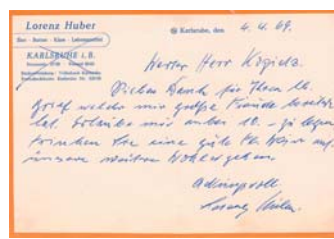 Lorenz Huber
Eier - Butter - Käse - Lebensmittel
KARLSRUHE i. B.
Karlsruhe, den 4. 4. 69.
Werter Herr
Vielen Dank für Ihren lb.
Brief welcher mir große Freude bereitet
hat. Erlaube mir anbei 10.- zu legen
trinken Sie eine gute Fl. Wein auf
unsere weiteres Wohlergehen.
Achtungsvoll
Lorenz Huber